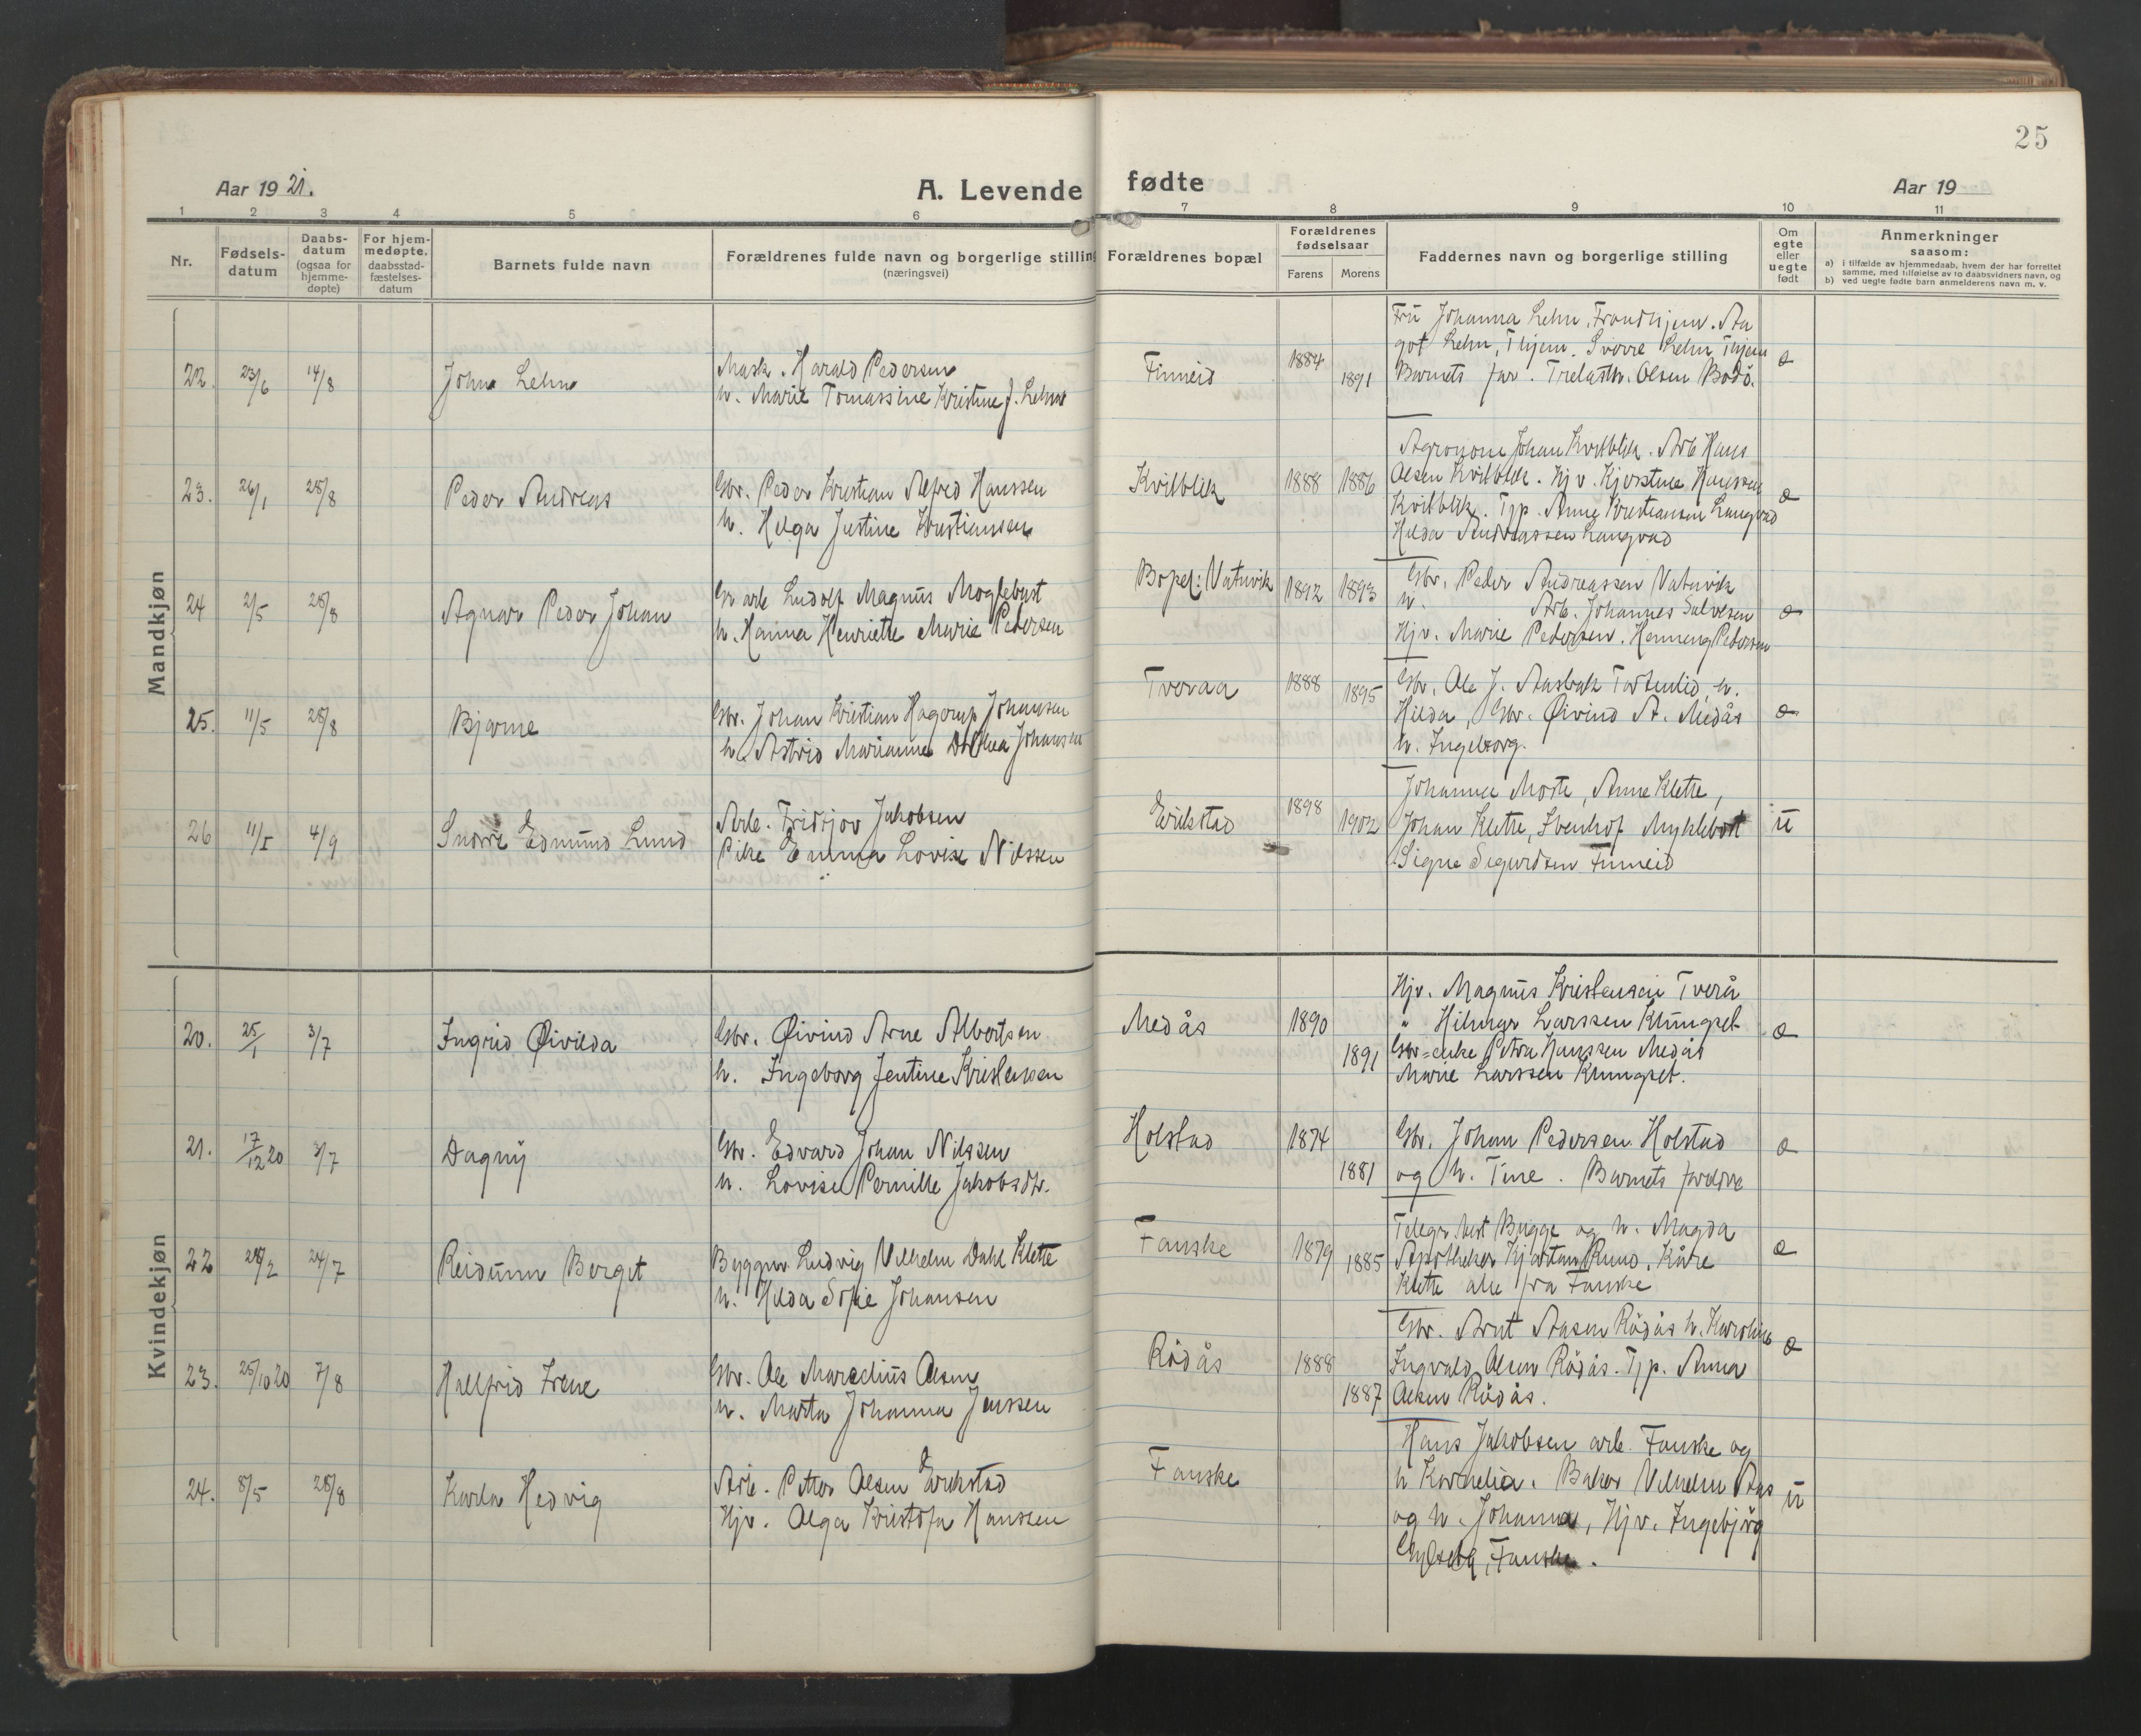 25
Aar 19 21.
A. Levende fødte
Aar 19
1 2 3 4 5 6 7 8 9 10 11
Nr.
Fødsels-
datum
Daabs-
datum
(ogsaa for
hjemme-
døpte)
For hjem-
medøpte,
daabsstad-
fæstelses-
datum
Barnets fulde navn
Forældrenes fulde navn og borgerlige stilling
(næringsvei)
Forældrenes bopæl
Forældrenes
fødselsaar
Farens Morens
Faddernes navn og borgerlige stilling
Om
egte
eller
uegte
født
Anmerkninger
saasom:
a) i tilfælde av hjemmedaab, hvem der har forrettet
samme, med tilføielse av to daabsvidners navn, og
b) ved uegte fødte barn anmelderens navn m. v.
Mandkjøn
22. 23/6 14/8 John Lehn
Mask. Harald Pedersen
h. Marie Tomassine Kristine J. Lehn
Finneid 1884 1891
Fru Johanna Lehn, Trondhjem. Aa
got Lehn, Thjem. Sverre Lehn Thjem
Barnets far. Trelasth. Olsen Bodö.
æ
23. 26/1 28/8 Peder Andreas
Gbr. Peder Kristian Alfred Hanssen
h. Helga Justine Kristiansen
Kvitblik 1888 1886
Agronom Johan Kvitblik. Arb Hans
Olsen Kvitblik. Hjv. Kjerstine Hanssen
Kvitblik. Tjp. Anna Kristiansen Langvad
Hilda Andreassen Langvad
æ
24 2/5 28/8 Agnar Peder Johan
Gr arb Ludolf Magnus Moglebust
h. Hanna Henriette Marie Pedersen
Bopel: Vatnvik 1892 1893
Gbr. Peder Andreassen Vatnvik
h. Arb. Johannes Salvesen
Hjv. Marie Pedersen. Henning Pedersen
æ
25. 11/5 28/8 Bjarne
Gbr. Johan Kristian Hagerup Johansen
h. Astrid Marianne Dorthea Johansen
Tveraa 1888 1895
Gbr. Ole J. Aasbak Tortenlid, h.
Hilda, Gbr. Øivind A. Medås
h. Ingeborg.
æ
26 11/5 4/9 Snorre Edmund Lund
Arb. Fridtjov Jakobsen
Pike Emma Lovise Nilssen
Erikstad 1898 1902
Johanna Moste, Anne Klette,
Johan Klette, Stenhof Myklebost
Signe Sigurdsen Finneid
u
Kvindekjøn
20. 25/1 3/7 Ingrid Øivilda
Gbr. Øivind Arne Albertsen
h. Ingeborg Jentine Kristensen
Medås 1890 1891
Hjv. Magnus Kristensen Tverå
" Hilmar Larssen Klungset
Gbr=enke Petra Hanssen Medås
Marie Larssen Klungset.
æ
21. 17/12 20 3/7 Dagny
Gbr. Edvard Johan Nilssen
h. Lovise Pernille Jakobsdtr.
Holstad 1874 1881
Gbr. Johan Pedersen Holstad
og h. Tine. Barnets foreldre
æ
22 28/2 24/7 Reidunn Berget
Byggm. Ludvig Vilhelm Dahl Klette
h. Hilda Sofie Johansen
Fauske 1879 1885
Telegr. best Bugge og h. Magda
Apotheker Kjartan Ruud. Kåre
Klette alle fra Fauske
æ
23. 25/10 20 7/8 Hallfrid Irene
Gbr. Ole Marcelius Olsen
h. Marta Johanna Jenssen
Rödås 1888 1887
Gbr. Arnt Aasen Rödås h. Karoline
Ingvald Olsen Rödås. Tjp. Anna
Olsen Rödås.
æ
24. 8/5 28/8 Karla Hedvig
Arb. Petter Olsen Erikstad
Hjv. Olga Kristofa Hanssen
Fauske
Hans Jakobsen arb. Fauske og
h Kornelia. Baker Vilhelm Aas
og h. Johanna, Hjv. Ingebjörg
Fauske.
u